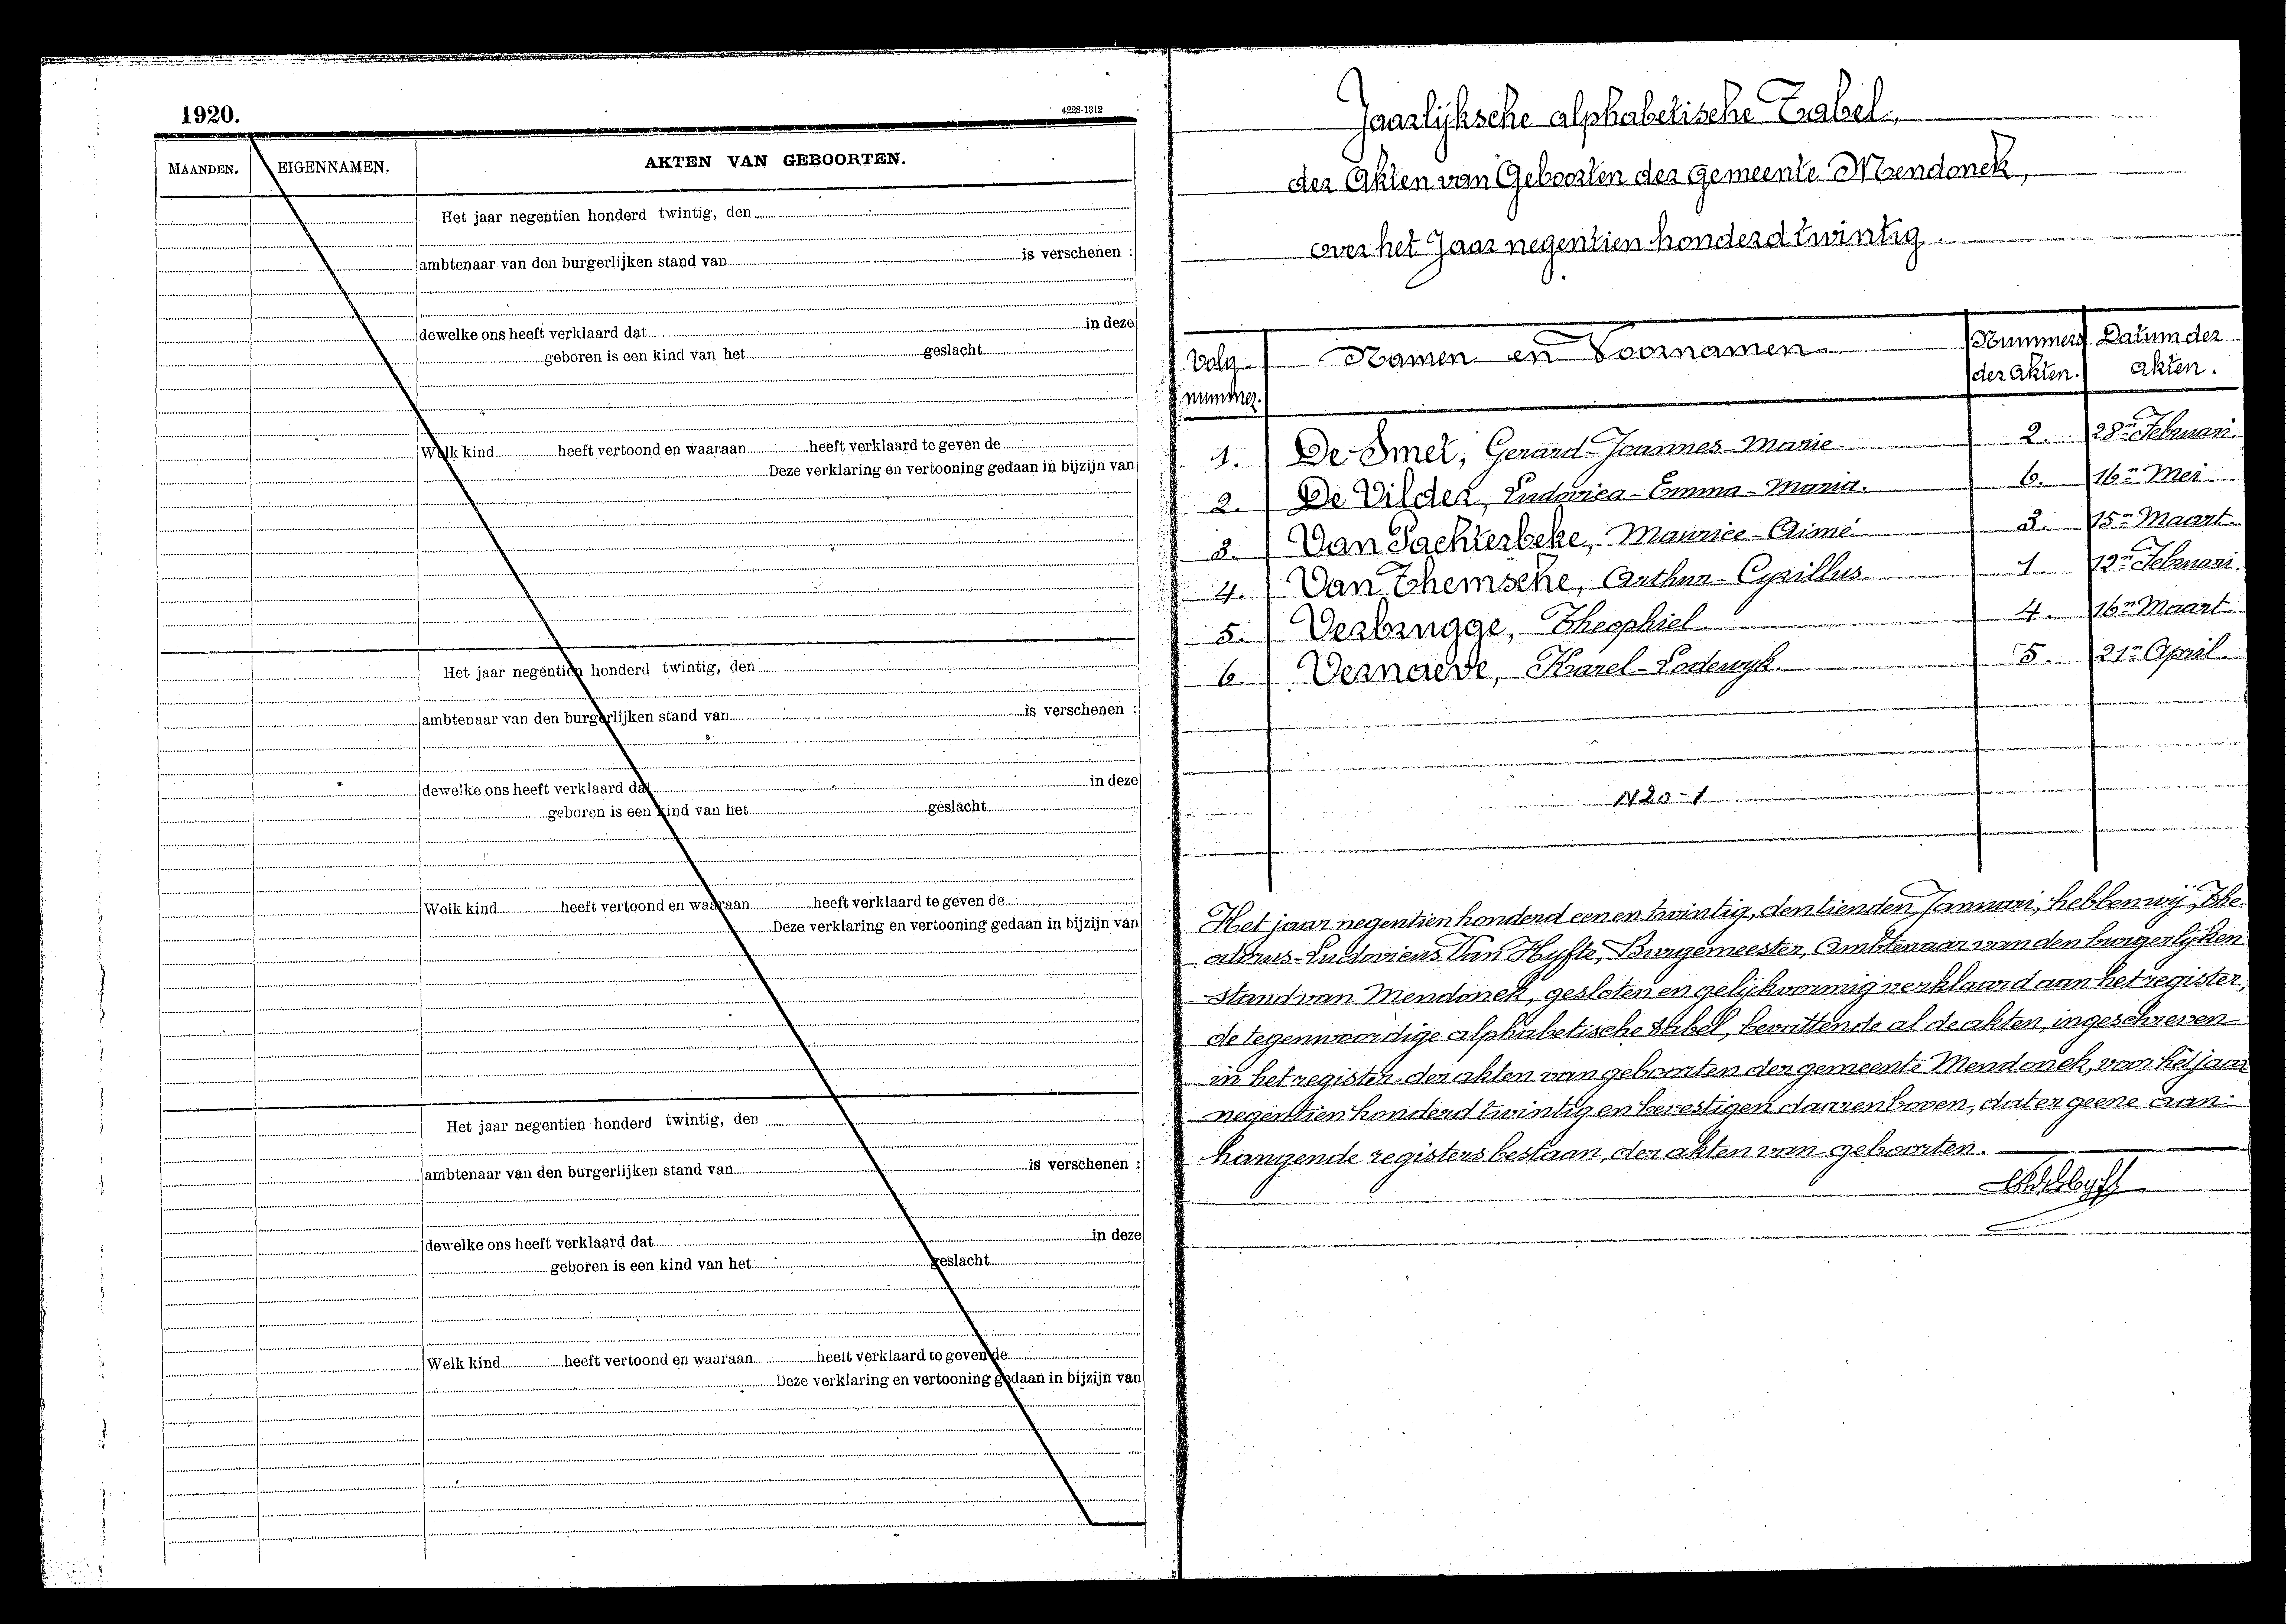 1920.
4228-1312
MAANDEN.
EIGENNAMEN.
AKTEN VAN GEBOORTEN.
Het jaar negentien honderd twintig, den
ambtenaar van den burgerlijken stand van is verschenen :
dewelke ons heeft verklaard dat in deze
geboren is een kind van het geslacht
Welk kind heeft vertoond en waaraan heeft verklaard te geven de
Deze verklaring en vertooning gedaan in bijzijn van
Het jaar negentien honderd twintig, den
ambtenaar van den burgerlijken stand van is verschenen :
dewelke ons heeft verklaard dat in deze
geboren is een kind van het geslacht
Welk kind heeft vertoond en waaraan heeft verklaard te geven de
Deze verklaring en vertooning gedaan in bijzijn van
Het jaar negentien honderd twintig, den
ambtenaar van den burgerlijken stand van is verschenen :
dewelke ons heeft verklaard dat in deze
geboren is een kind van het geslacht
Welk kind heeft vertoond en waaraan heeft verklaard te geven de
Deze verklaring en vertooning gedaan in bijzijn van
Jaarlijksche alphabetische Tabel,
der Akten van Geboorten der gemeente Mendonck,
over het Jaar negentien honderd twintig.
Volg nummer. Namen en Voornamen Nummers der akten. Datum der akten.
1. De Smet, Gerard-Joannes-Marie 2. 28n Februari.
2. De Vilder, Ludovica-Emma-Maria. 6. 16n Mei
3. Van Pachterbeke, Maurice-Aimé 3. 15n Maart
4. Van Themsche, Arthur-Cyrillus 1. 12n Februari.
5. Verbrugge, Theophiel 4. 16n Maart
6. Vernaeve, Karel-Lodewyk. 5. 21n April
N 20-1
Het jaar negentien honderd een en twintig, den tienden Januari, hebben wij, The
odorus-Ludovicus Van Hyfte, Burgemeester, Ambtenaar van den burgerlijken
stand van Mendonck, gesloten en gelijkvormig verklaard aan het register,
de tegenwoordige alphabetische tabel, bevattende al de akten, ingeschreven
in het register der akten van geboorten der gemeente Mendonck, van het jaar
negentien honderd twintig en bevestigen daarenboven, dat er geene aan-
hangende registers bestaan, der akten van geboorten.